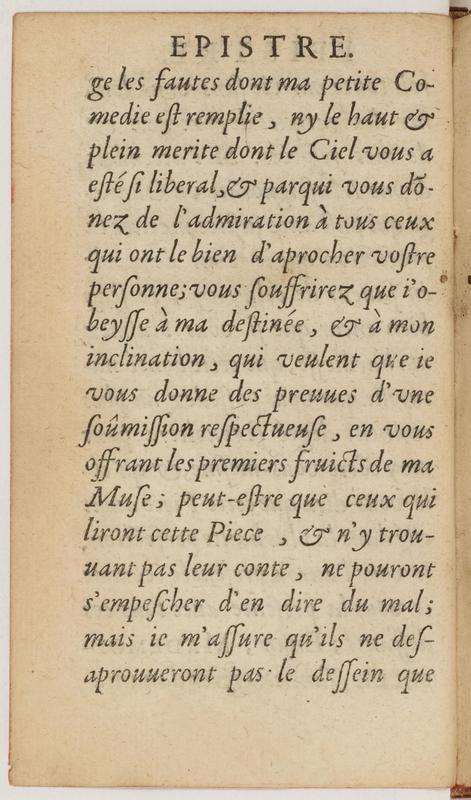 EPISTRE.
ge les fautes dont ma petite Co-
medie eſt remplie, ny le haut &
plein merite dont le Ciel vous a
eſté ſi liberal, & par qui vous dō-
nez de l'admiration à tous ceux
qui ont le bien d'aprocher voſtre
perſonne; vous ſouffrirez que i'o-
beyſſe à ma deſtinée, & à mon
inclination, qui veulent que ie
vous donne des preuues d'vne
ſoûmiſſion reſpectueuſe, en vous
offrant les premiers fruicts de ma
Muſe; peut-eſtre que ceux qui
liront cette Piece, & n'y trou-
uant pas leur conte, ne pouront
s'empeſcher d'en dire du mal;
mais ie m'aſſure qu'ils ne deſ-
aprouueront pas le deſſein que